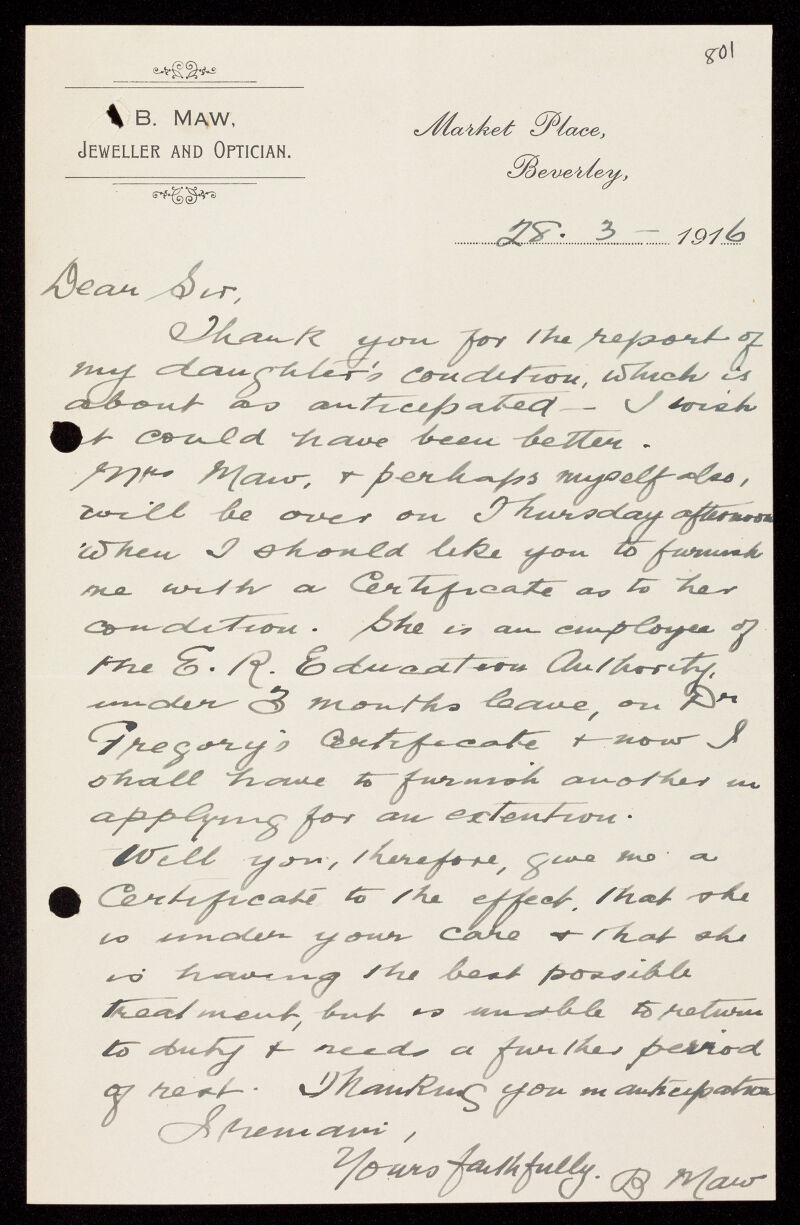 801
B. MAW,
JEWELLER AND OPTICIAN.
Market Place,
Beverley,
28. 3 - 1916
Dear Sir,
Thank you for the report of
my daughter's condition, which is
about as anticipated - I wish
it could have been better.
Mrs Maw, & perhaps myself also,
will be over on Thursday afternoon
when I should like you to furnish
me with a Certificate as to her
condition. She is an employee of
the E. R. Education Authority,
under 3 months leave, on Dr
Gregory's Certificate & now I
shall have to furnish another in
applying for an extention.
Will you, therefore, give me a
Certificate to the effect, that she
is under your care & that she
is having the best possible
treatment, but is unable to return
to duty & needs a further period
of rest. Thanking you in anticipation
I remain,
Yours faithfully. B Maw